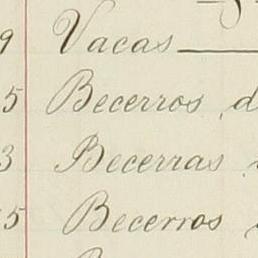 9 Vacas
5 Becerros d
3 Becerras
5 Becerros